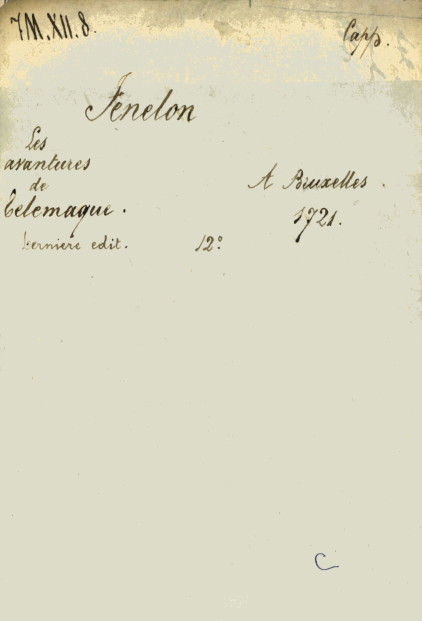 7M.XII.8.
Capp.
Fenelon
Les
avantures
de
Telemaque.
A Bruxelles.
1721.
Derniere edit.
12°
C